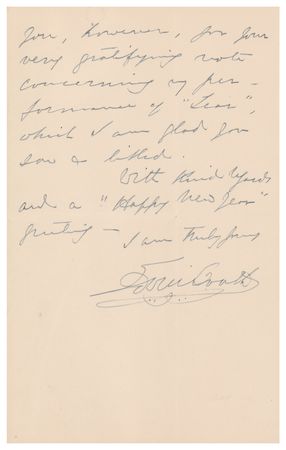 you, however, for your
very gratifying note
concerning my per-
formance of "Lear",
which I am glad you
saw & liked.
With kind regards
and a "Happy New Year"
greeting —
I am truly yours
Edwin Booth